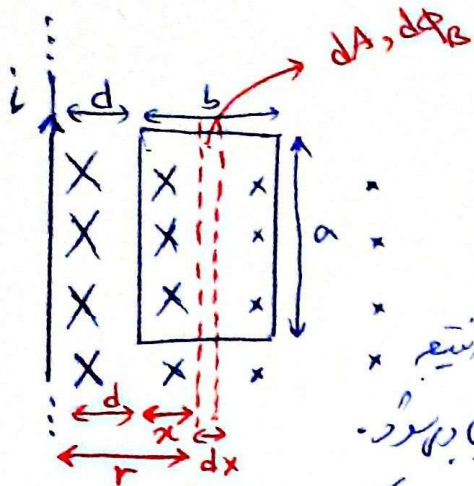 dA, dΦ_B
i
d
b
a
d
x
r
dx